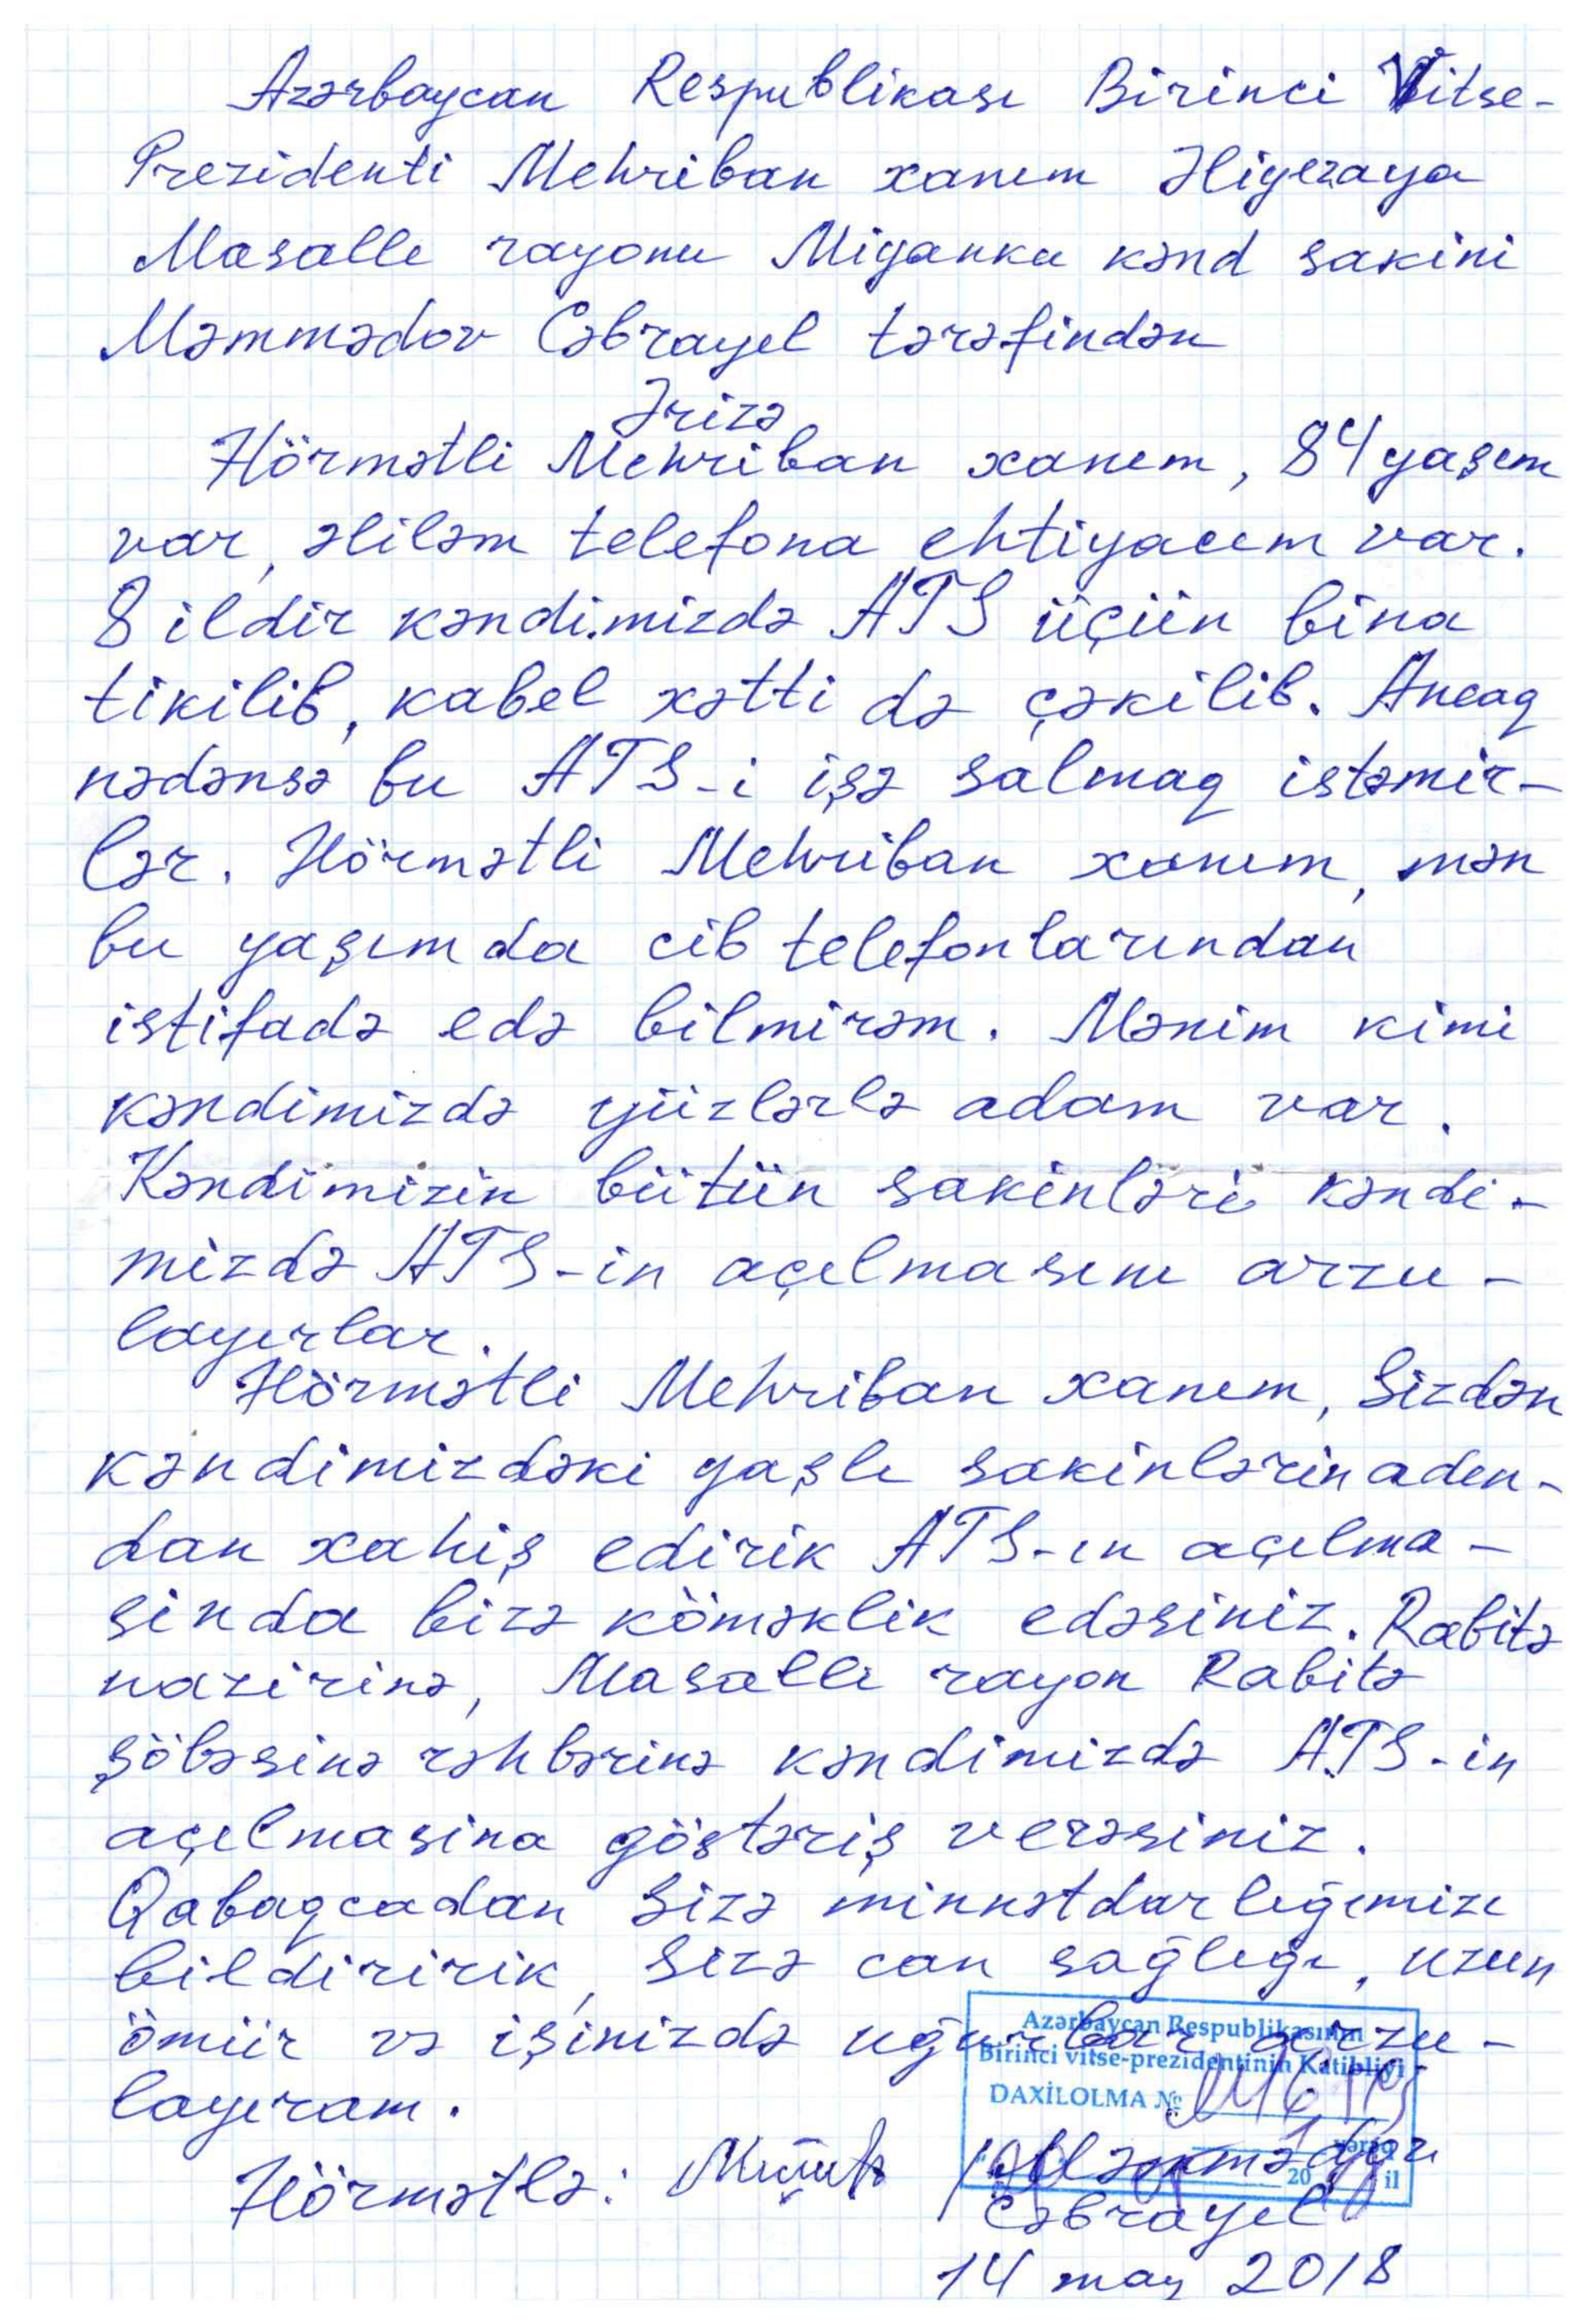 Azərbaycan Respublikası Birinci Vitse-
Prezidenti Mehriban xanım Əliyevaya
Masallı rayonu Miyanku kənd sakini
Məmmədov Cəbrayıl tərəfindən
Ərizə
Hörmətli Mehriban xanım, 84 yaşım
var, əliləm telefona ehtiyacım var.
8 ildir kəndimizdə ATS üçün bina
tikilib, kabel xətti də çəkilib. Ancaq
nədənsə bu ATS-i işə salmaq istəmir-
lər. Hörmətli Mehriban xanım, mən
bu yaşımda cib telefonlarından
istifadə edə bilmirəm. Mənim kimi
kəndimizdə yüzlərlə adam var.
Kəndimizin bütün sakinləri kəndi-
mizdə ATS-in açılmasını arzu-
layırlar.
Hörmətli Mehriban xanım, Sizdən
kəndimizdəki yaşlı sakinlərin adın-
dan xahiş edirik ATS-ın açılma-
sinda bizə köməklik edəsiniz. Rabitə
nazirinə, Masallı rayon Rabitə
şöbəsinə rəhbərinə kəndimizdə ATS-in
açılmasina göstəriş verəsiniz.
Qabaqcadan Sizə minnətdarlığımızı
bildiririk, Sizə can sağlığı, uzun
ömür və işinizdə uğurlar arzu-
layıram.
Azərbaycan Respublikasının
Birinci vitse-prezidentinin Katibliyi
DAXİLOLMA №
vərəq
20 il
Hörmətlə: Məmmədov
Cəbrayıl
14 may 2018